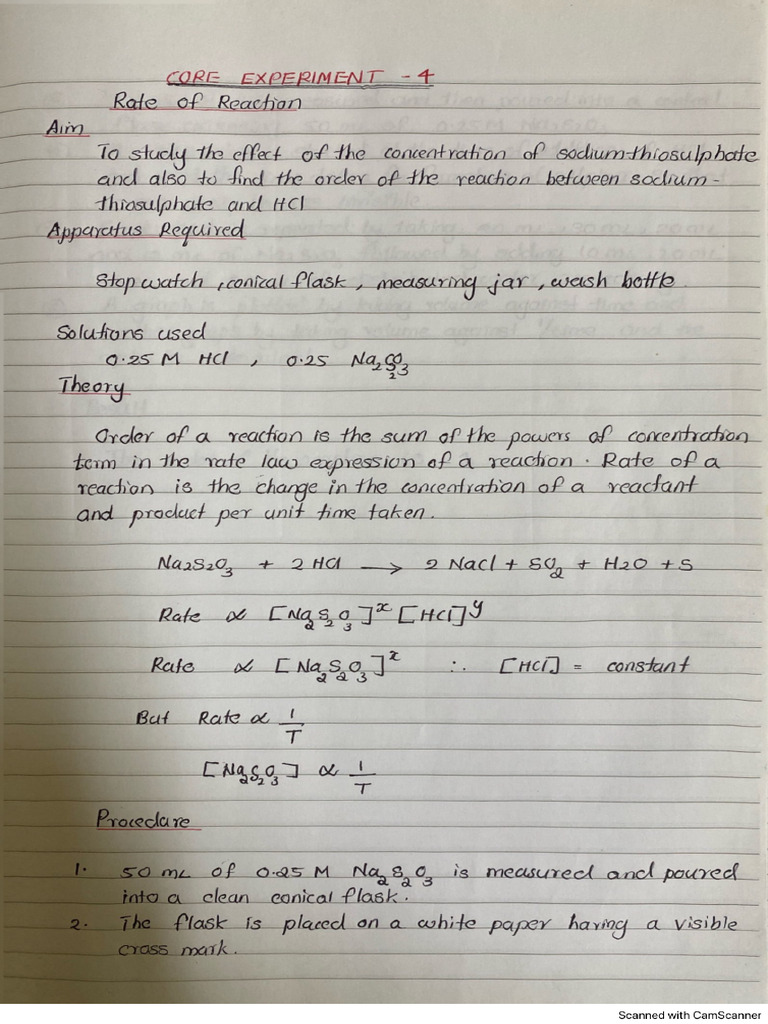 CORE EXPERIMENT - 4
Rate of Reaction
Aim
To study the effect of the concentration of sodium-thiosulphate
and also to find the order of the reaction between sodium-
thiosulphate and HCl
Apparatus Required
Stop watch, conical flask, measuring jar, wash bottle.
Solutions used
0.25 M HCl, 0.25 Na₂S₂O₃
Theory
Order of a reaction is the sum of the powers of concentration
term in the rate law expression of a reaction. Rate of a
reaction is the change in the concentration of a reactant
and product per unit time taken.
Na₂S₂O₃ + 2 HCl → 2 NaCl + SO₂ + H₂O + S
Rate ∝ [Na₂S₂O₃]ˣ [HCl]ʸ
Rate ∝ [Na₂S₂O₃]ˣ ∴ [HCl] = constant
But Rate ∝ 1/T
[Na₂S₂O₃] ∝ 1/T
Procedure
1. 50 mL of 0.25 M Na₂S₂O₃ is measured and poured
into a clean conical flask.
2. The flask is placed on a white paper having a visible
cross mark.
Scanned with CamScanner